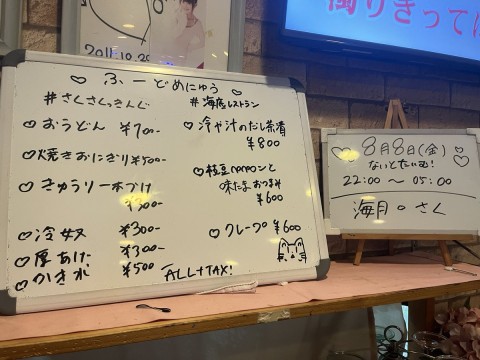 2011.10.29
♡ ふーどめにゅう ♡
#さくさくっきんぐ
#海底レストラン
♡おうどん ¥700-
♡焼きおにぎり ¥500-
♡きゅうり一本づけ
¥300-
♡冷奴 ¥300-
♡厚あげ ¥300-
♡かき氷 ¥500
♡冷や汁のだし茶漬
¥800
♡枝豆ペペロンと
味たまおつまみ
¥600
♡クレープ ¥600
ALL+TAX!
8月8日(金)
ないとたいむ!
22:00 〜 05:00
海月 ○ さく